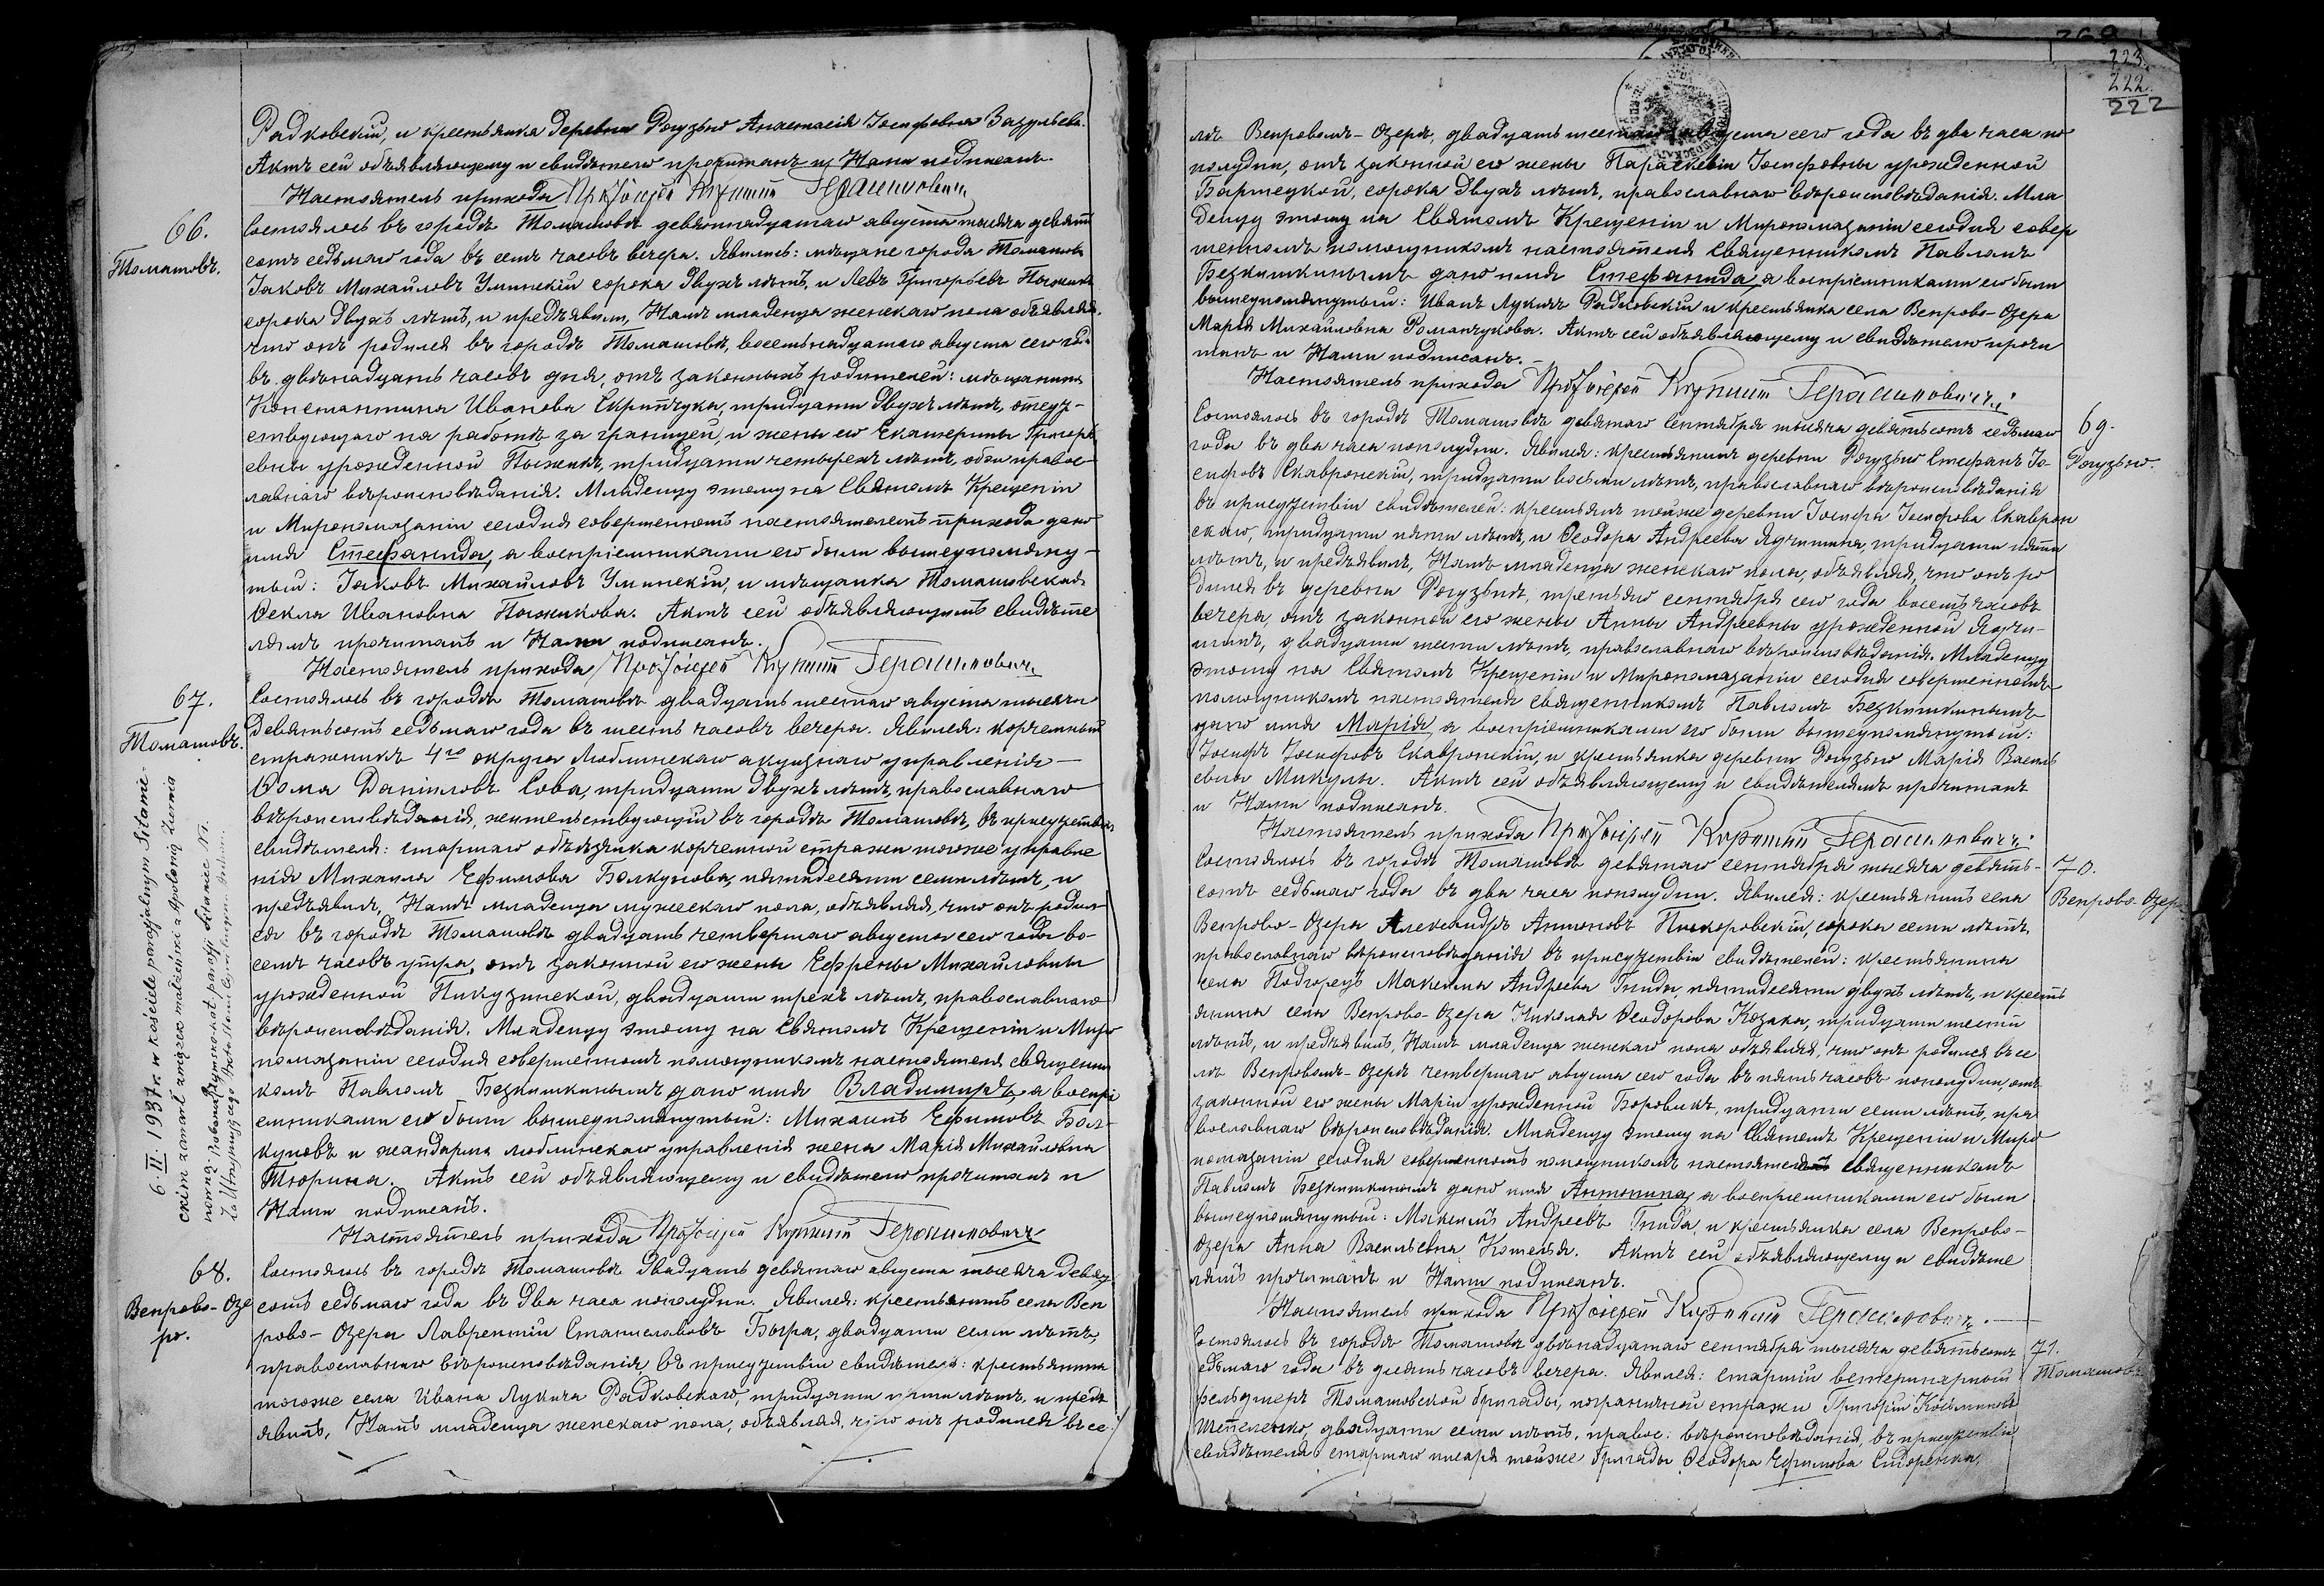 Радковскій, и крестьянка деревни Рогузьно Анастасія Іосифовна Зазулева.
Актъ сей объявляющему и свидѣтелю прочитанъ и Нами подписанъ.
Настоятель прихода Протоіерей Герасимовичъ
66.
Томашовъ.
Состоялось въ городѣ Томашовѣ девятнадцатаго августа тысяча девятьсотъ седьмаго года въ семь часовъ вечера. Явились: мѣщане города Томашова
Іаковъ Михаиловъ Уминскій сорока двухъ лѣтъ, и Левъ Григорьевъ
сорока двухъ лѣтъ, и предъявили, Намъ младенца женскаго пола объявляя,
что онъ родился въ городѣ Томашовѣ, восемнадцатаго августа сего года
въ двѣнадцать часовъ дня, отъ законныхъ родителей: мѣщанина
Константина Иванова Скрипчука, тридцати двухъ лѣтъ, отсут-
ствующаго на работѣ за границей, и жены его Екатерины Григорь
евны урожденной тридцати четырехъ лѣтъ, оба правос-
лавнаго вѣроисповѣданія. Младенцу этому на Святомъ Крещеніи
и Миропомазаніи сегодня совершенномъ настоятелемъ прихода дано
имя Стефанида, а воспріемниками его были вышеупомяну-
тый: Іаковъ Михаиловъ Уминскій, и мѣщанка Томашовская
Ѳекла Ивановна Актъ сей объявляющимъ свидѣте
лямъ прочитанъ и Нами подписанъ.
Настоятель прихода Протоіерей Герасимовичъ
67.
Томашовъ.
Состоялось въ городѣ Томашовѣ двадцать шестаго августа тысяча
девятьсотъ седьмаго года въ шесть часовъ вечера. Явился: корчемный
стражникъ 4го округа Люблинскаго акцизнаго управленія —
Ѳома Даниловъ Сова, тридцати двухъ лѣтъ, православнаго
вѣроисповѣданія, жительствующій въ городѣ Томашовѣ, въ присутствіи
свидѣтеля: старшаго объѣздчика корчемной стражи тогоже управле
нія Михаила Ефимова Болкунова, пятидесяти семи лѣтъ, и
предъявилъ, Намъ младенца мужескаго пола, объявляя, что онъ родил
ся въ городѣ Томашовѣ двадцать четвертаго августа сего года во-
семь часовъ утра, отъ законной его жены Михаиловны
урожденной двадцати трехъ лѣтъ, православнаго
вѣроисповѣданія. Младенцу этому на Святомъ Крещеніи и Миро
помазаніи сегодня совершенномъ помощникомъ настоятеля священни
комъ Павломъ Безкишкинымъ дано имя Владимиръ, а воспрі
емниками его были вышеупомянутый: Михаилъ Ефимовъ Бол-
куновъ и жандарма люблинскаго управленія жена Марія Михайловна
Тюрина. Актъ сей объявляющему и свидѣтелю прочитанъ и
Нами подписанъ.
Настоятель прихода Протоіерей Герасимовичъ
6. II. 1937 r. w kościele parafjalnym Sitanie-
ckim zawarł związek małżeński z Apolonią
68.
Вепрово-Озе
ро.
Состоялось въ городѣ Томашовѣ двадцать девятаго августа тысяча девять
сотъ седьмаго года въ два часа пополудни. Явился: крестьянинъ села Веп
рово-Озера Лаврентій Станиславовъ двадцати семи лѣтъ,
православнаго вѣроисповѣданія, въ присутствіи свидѣтеля: крестьянина
тогоже села Ивана Лукича Радковскаго, тридцати пяти лѣтъ, и предъ
явилъ, Намъ младенца женскаго пола, объявляя, что онъ родился въ се-
269
223.
222.
222
лѣ Вепровомъ-Озерѣ, двадцать августа сего года въ два часа по
полудни, отъ законной его жены Параскевіи Іосифовны урожденной
Бартецкой, сорока двухъ лѣтъ, православнаго вѣроисповѣданія. Мла
денцу этому на Святомъ Крещеніи и Миропомазаніи сегодня совер
шенномъ помощникомъ настоятеля священникомъ Павломъ
Безкишкинымъ дано имя Стефанида, а воспріемниками его были
вышеупомянутый: Иванъ Лукичъ Радковскій и крестьянка села Вепрово-Озера
Марія Михайловна Романчукова. Актъ сей объявляющему и свидѣтелю прочи
танъ и Нами подписанъ. —
Настоятель прихода Протоіерей Герасимовичъ
69.
Рогузьно.
Состоялось въ городѣ Томашовѣ девятаго Сентября тысяча девятьсотъ седьмаго
года въ два часа пополудни. Явился: крестьянинъ деревни Рогузьно Стефанъ Іо-
сифовъ Скавронскій, тридцати восьми лѣтъ, православнаго вѣроисповѣданія
въ присутствіи свидѣтелей: крестьянъ тойже деревни Іосифа Іосифова Скаврон
скаго, тридцати пяти лѣтъ, и Ѳеодора Андреева тридцати пяти
лѣтъ, и предъявилъ, Намъ младенца женскаго пола, объявляя, что онъ ро
дился въ деревни Рогузьнѣ, третьяго сентября сего года восемь часовъ
вечера, отъ законной его жены Анны Андреевны урожденной
двадцати шести лѣтъ, православнаго вѣроисповѣданія. Младенцу
этому на Святомъ Крещеніи и Миропомазаніи сегодня совершенномъ
помощникомъ настоятеля священникомъ Павломъ Безкишкинымъ
дано имя Марія а воспріемниками его были вышеупомянутый:
Іосифъ Іосифовъ Скавронскій, и крестьянка деревни Рогузьно Марія Василь
евна Микулы. Актъ сей объявляющему и свидѣтелямъ прочитанъ
и Нами подписанъ.
Настоятель прихода Протоіерей Герасимовичъ
70.
Вепрово-Озеро
Состоялось въ городѣ Томашовѣ девятаго сентября тысяча девять-
сотъ седьмаго года въ два часа пополудни. Явился: крестьянинъ села
Вепрово-Озера Александръ Антоновъ сорока семи лѣтъ,
православнаго вѣроисповѣданія въ присутствіи свидѣтелей: крестьянина
села Подгорецъ Максима Андреева Гнида, пятидесяти двухъ лѣтъ, и кресть
янина села Вепрово-Озера Николая Ѳеодорова Козака, тридцати шести
лѣтъ, и предъявилъ, Намъ младенца женскаго пола объявляя, что онъ родился въ се
лѣ Вепровомъ-Озерѣ четвертаго августа сего года въ пять часовъ пополудни, отъ
законной его жены Маріи урожденной Боровикъ, тридцати семи лѣтъ, пра
вославнаго вѣроисповѣданія. Младенцу этому на Святомъ Крещеніи и Миро
помазаніи сегодня совершенномъ помощникомъ настоятеля священникомъ
Павломъ Безкишкинымъ дано имя Антонина, а воспріемниками его были
вышеупомянутый: Максимъ Андреевъ Гнида, и крестьянка села Вепрово-
Озера Анна Васильевна Актъ сей объявляющему и свидѣте
лямъ прочитанъ и Нами подписанъ.
Настоятель прихода Протоіерей Герасимовичъ
71.
Томашовъ
Состоялось въ городѣ Томашовѣ двѣнадцатаго сентября тысяча девятьсотъ
седьмаго года въ десять часовъ вечера. Явился: старшій ветеринарный
фельдшеръ Томашовской бригады, пограничной стражи Григорій
двадцати семи лѣтъ, правос: вѣроисповѣданія, въ присутствіи
свидѣтеля старшаго писаря тойже бригады Ѳеодора Ефимова Сидоренка,